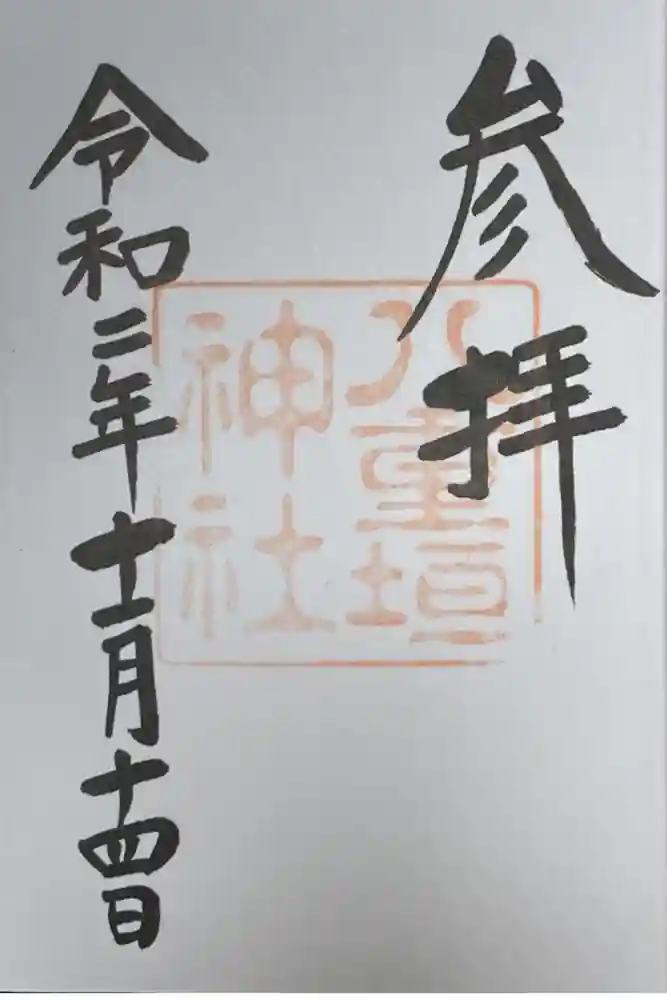 参拝
八重垣
神社
令和二年十一月十四日